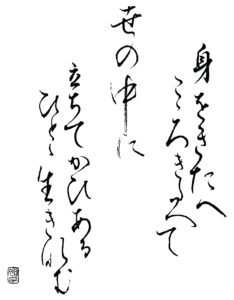 身をきたへ
こころきたへて
世の中に
立ちてかひある
ひとと生きなむ